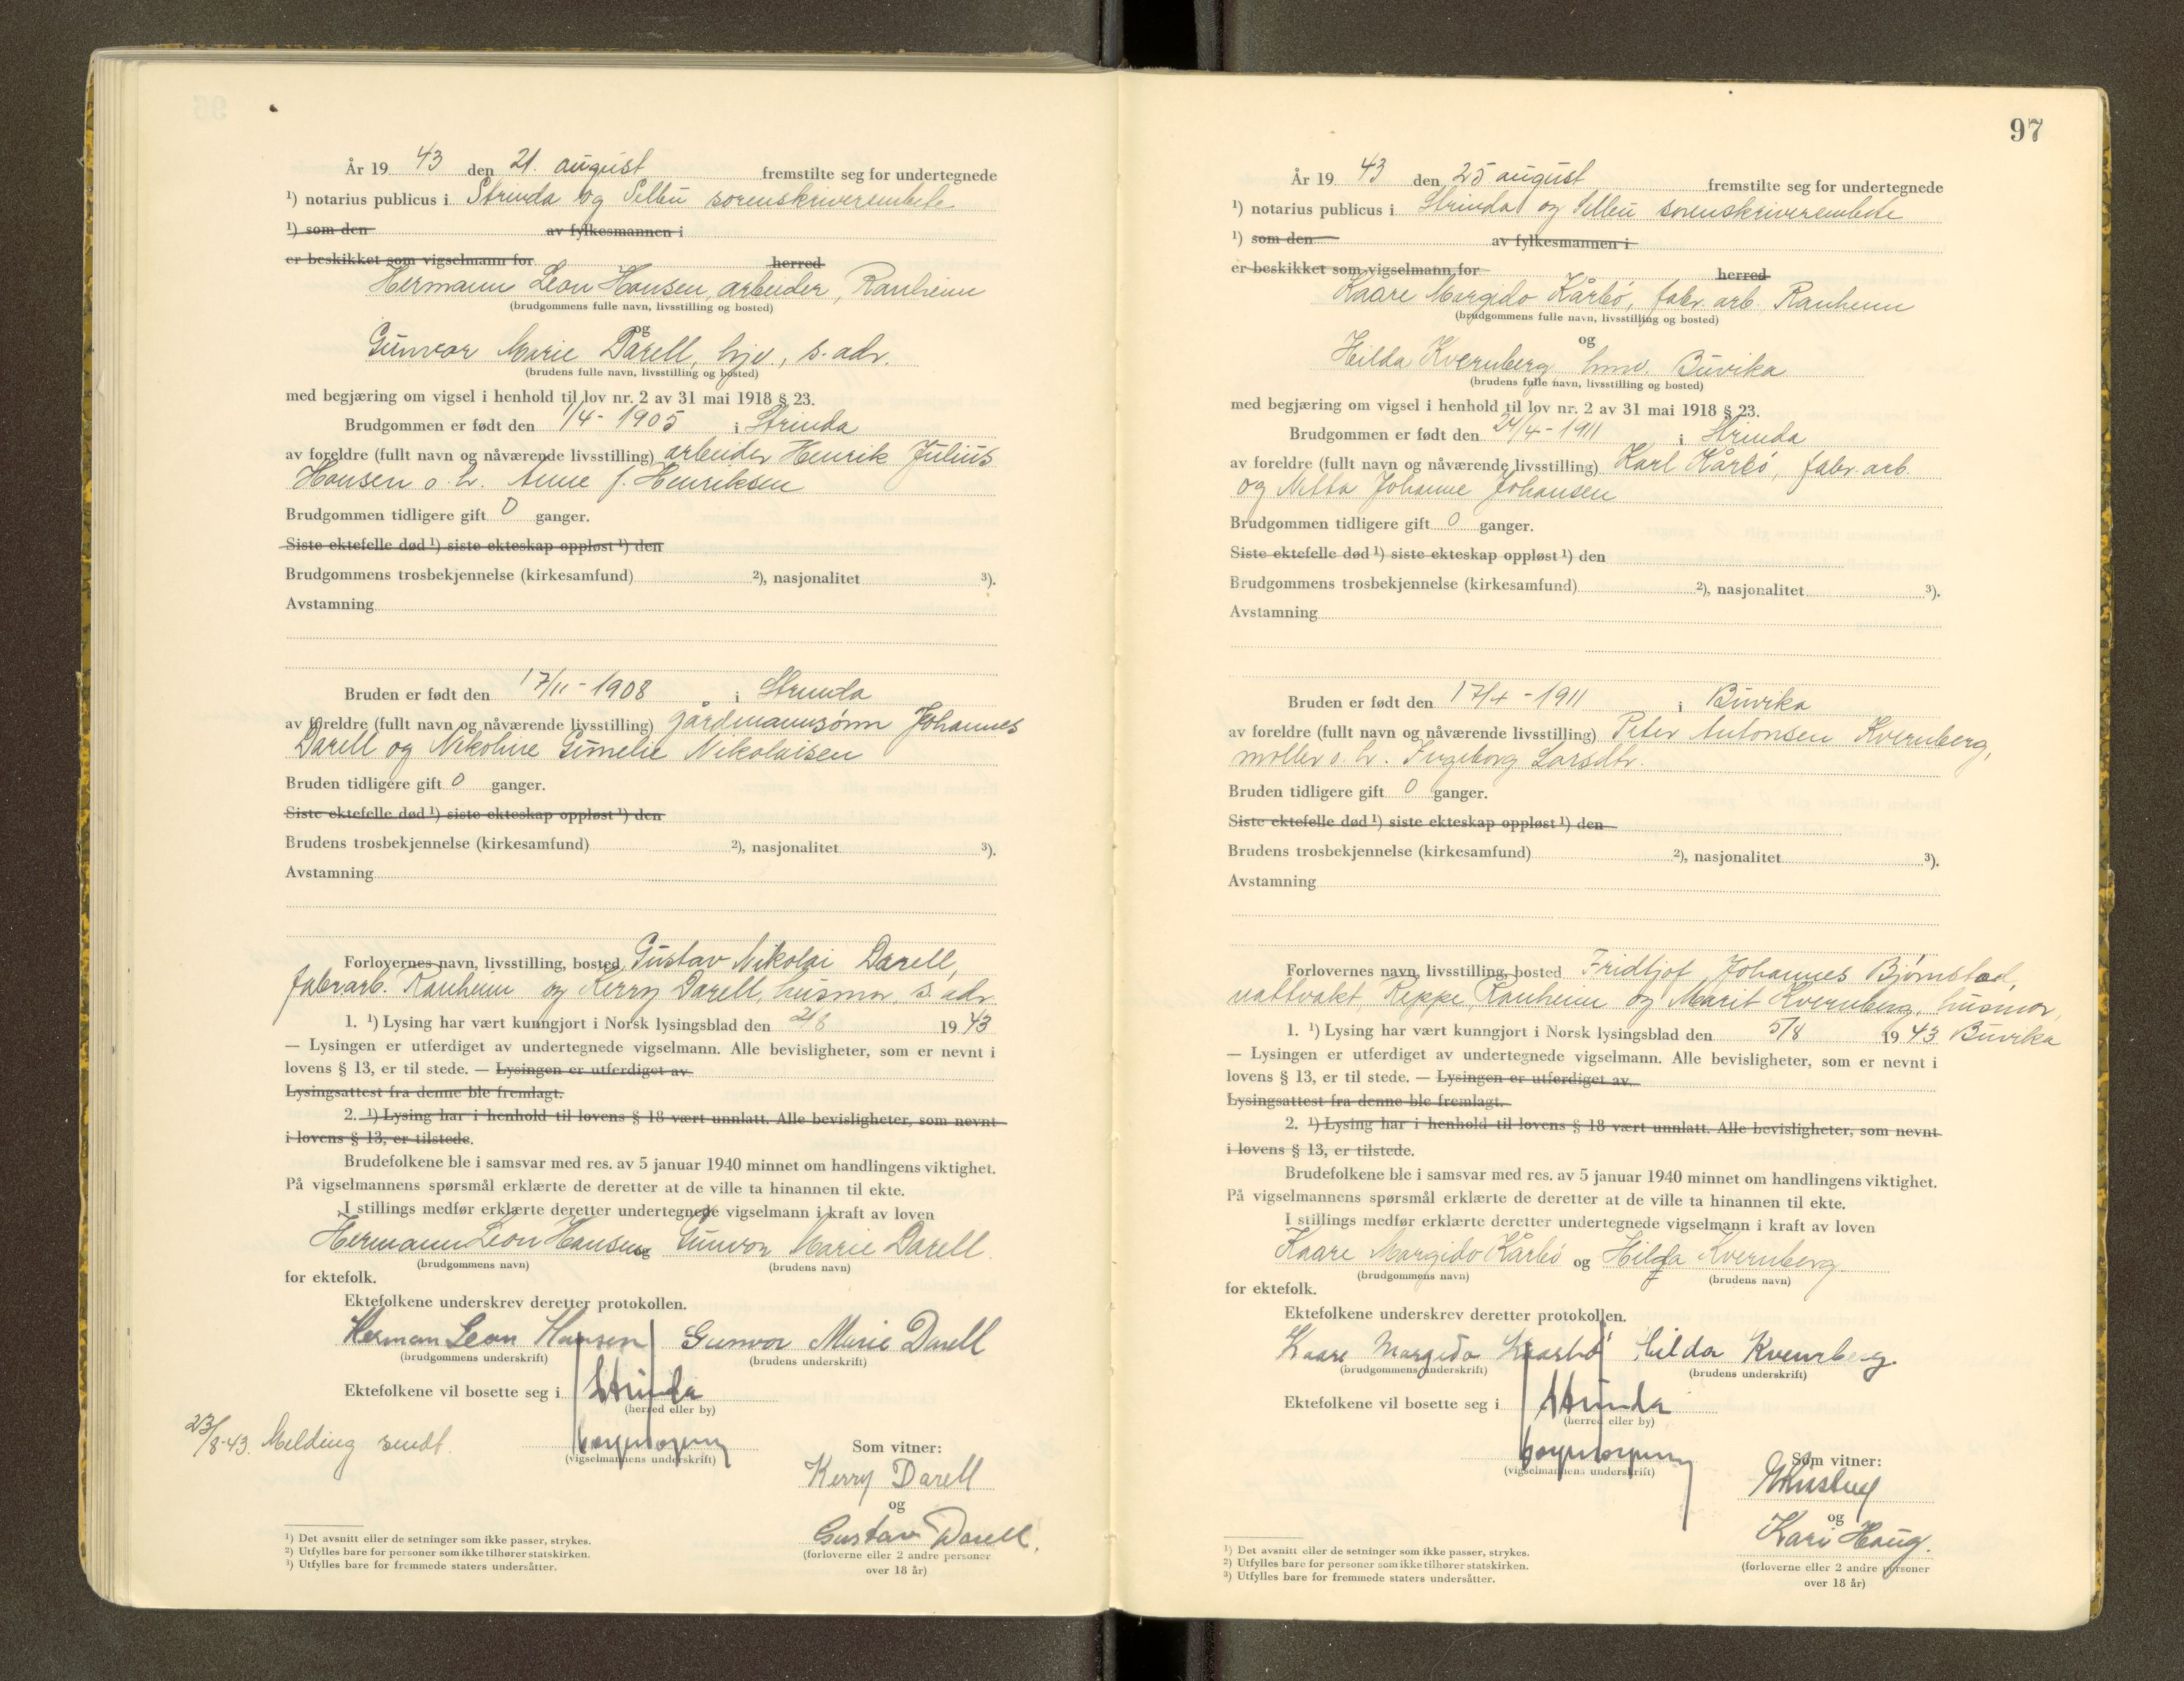 År 19 43 den 21. august fremstilte seg for undertegnede
¹) notarius publicus i Strinda og Selbu sorenskriverembete
¹) som den av fylkesmannen i
er beskikket som vigselmann for herred
Hermann Leon Hansen, arbeider, Ranheim
(brudgommens fulle navn, livsstilling og bosted)
og
Gunvor Marie Darell, hjv., s. adr.
(brudens fulle navn, livsstilling og bosted)
med begjæring om vigsel i henhold til lov nr. 2 av 31 mai 1918 § 23.
Brudgommen er født den 1/4-1905 i Strinda
av foreldre (fullt navn og nåværende livsstilling) arbeider Henrik Julius
Hansen o. h. Anne f. Henriksen
Brudgommen tidligere gift 0 ganger.
Siste ektefelle død ¹) siste ekteskap oppløst ¹) den
Brudgommens trosbekjennelse (kirkesamfund) ²), nasjonalitet ³).
Avstamning
Bruden er født den 17/11-1908 i Strinda
av foreldre (fullt navn og nåværende livsstilling) gårdmannsønn Johannes
Darell og Nikoline Gunelie Nikolaisen
Bruden tidligere gift 0 ganger.
Siste ektefelle død ¹) siste ekteskap oppløst ¹) den
Brudens trosbekjennelse (kirkesamfund) ²), nasjonalitet ³).
Avstamning
Forlovernes navn, livsstilling, bosted Gustav Nikolai Darell,
fabr.arb. Ranheim og Kerry Darell, husmor, s. adr.
1. ¹) Lysing har vært kunngjort i Norsk lysingsblad den 2/8 19 43
— Lysingen er utferdiget av undertegnede vigselmann. Alle bevisligheter, som er nevnt i
lovens § 13, er til stede. — Lysingen er utferdiget av
Lysingsattest fra denne ble fremlagt.
2. ¹) Lysing har i henhold til lovens § 18 vært unnlatt. Alle bevisligheter, som nevnt
i lovens § 13, er tilstede.
Brudefolkene ble i samsvar med res. av 5 januar 1940 minnet om handlingens viktighet.
På vigselmannens spørsmål erklærte de deretter at de ville ta hinannen til ekte.
I stillings medfør erklærte deretter undertegnede vigselmann i kraft av loven
Hermann Leon Hansen og Gunvor Marie Darell
(brudgommens navn) (brudens navn)
for ektefolk.
Ektefolkene underskrev deretter protokollen.
Herman Leon Hansen Gunvor Marie Darell
(brudgommens underskrift) (brudens underskrift)
Ektefolkene vil bosette seg i Strinda
(herred eller by)
23/8-43. Melding sendt.
(vigselmannens underskrift)
Som vitner:
Kerry Darell
og
Gustav Darell.
(forloverne eller 2 andre personer
over 18 år)
¹) Det avsnitt eller de setninger som ikke passer, strykes.
²) Utfylles bare for personer som ikke tilhører statskirken.
³) Utfylles bare for fremmede staters undersåtter.
97
År 19 43 den 25 august fremstilte seg for undertegnede
¹) notarius publicus i Strinda og Selbu sorenskriverembete
¹) som den av fylkesmannen i
er beskikket som vigselmann for herred
Kaare Margido Kårbø, fabr. arb. Ranheim
(brudgommens fulle navn, livsstilling og bosted)
og
Hilda Kvernberg hmv. Buvika
(brudens fulle navn, livsstilling og bosted)
med begjæring om vigsel i henhold til lov nr. 2 av 31 mai 1918 § 23.
Brudgommen er født den 24/4-1911 i Strinda
av foreldre (fullt navn og nåværende livsstilling) Karl Kårbø, fabr. arb.
og Netta Johanne Johansen
Brudgommen tidligere gift 0 ganger.
Siste ektefelle død ¹) siste ekteskap oppløst ¹) den
Brudgommens trosbekjennelse (kirkesamfund) ²), nasjonalitet ³).
Avstamning
Bruden er født den 17/4-1911 i Buvika
av foreldre (fullt navn og nåværende livsstilling) Peter Antonsen Kvernberg,
møller o. h. Ingeborg Larsdtr.
Bruden tidligere gift 0 ganger.
Siste ektefelle død ¹) siste ekteskap oppløst ¹) den
Brudens trosbekjennelse (kirkesamfund) ²), nasjonalitet ³).
Avstamning
Forlovernes navn, livsstilling, bosted Fridtjof Johannes Bjørnstad,
nattvakt, Reppe, Ranheim og Marit Kvernberg, husmor,
1. ¹) Lysing har vært kunngjort i Norsk lysingsblad den 5/8 19 43 Buvika
— Lysingen er utferdiget av undertegnede vigselmann. Alle bevisligheter, som er nevnt i
lovens § 13, er til stede. — Lysingen er utferdiget av
Lysingsattest fra denne ble fremlagt.
2. ¹) Lysing har i henhold til lovens § 18 vært unnlatt. Alle bevisligheter, som nevnt
i lovens § 13, er tilstede.
Brudefolkene ble i samsvar med res. av 5 januar 1940 minnet om handlingens viktighet.
På vigselmannens spørsmål erklærte de deretter at de ville ta hinannen til ekte.
I stillings medfør erklærte deretter undertegnede vigselmann i kraft av loven
Kaare Margido Kårbø og Hilda Kvernberg
(brudgommens navn) (brudens navn)
for ektefolk.
Ektefolkene underskrev deretter protokollen.
Kaare Margido Kaarbø Hilda Kvernberg.
(brudgommens underskrift) (brudens underskrift)
Ektefolkene vil bosette seg i Strinda
(herred eller by)
(vigselmannens underskrift)
Som vitner:
og
Kari Haug.
(forloverne eller 2 andre personer
over 18 år)
¹) Det avsnitt eller de setninger som ikke passer, strykes.
²) Utfylles bare for personer som ikke tilhører statskirken.
³) Utfylles bare for fremmede staters undersåtter.